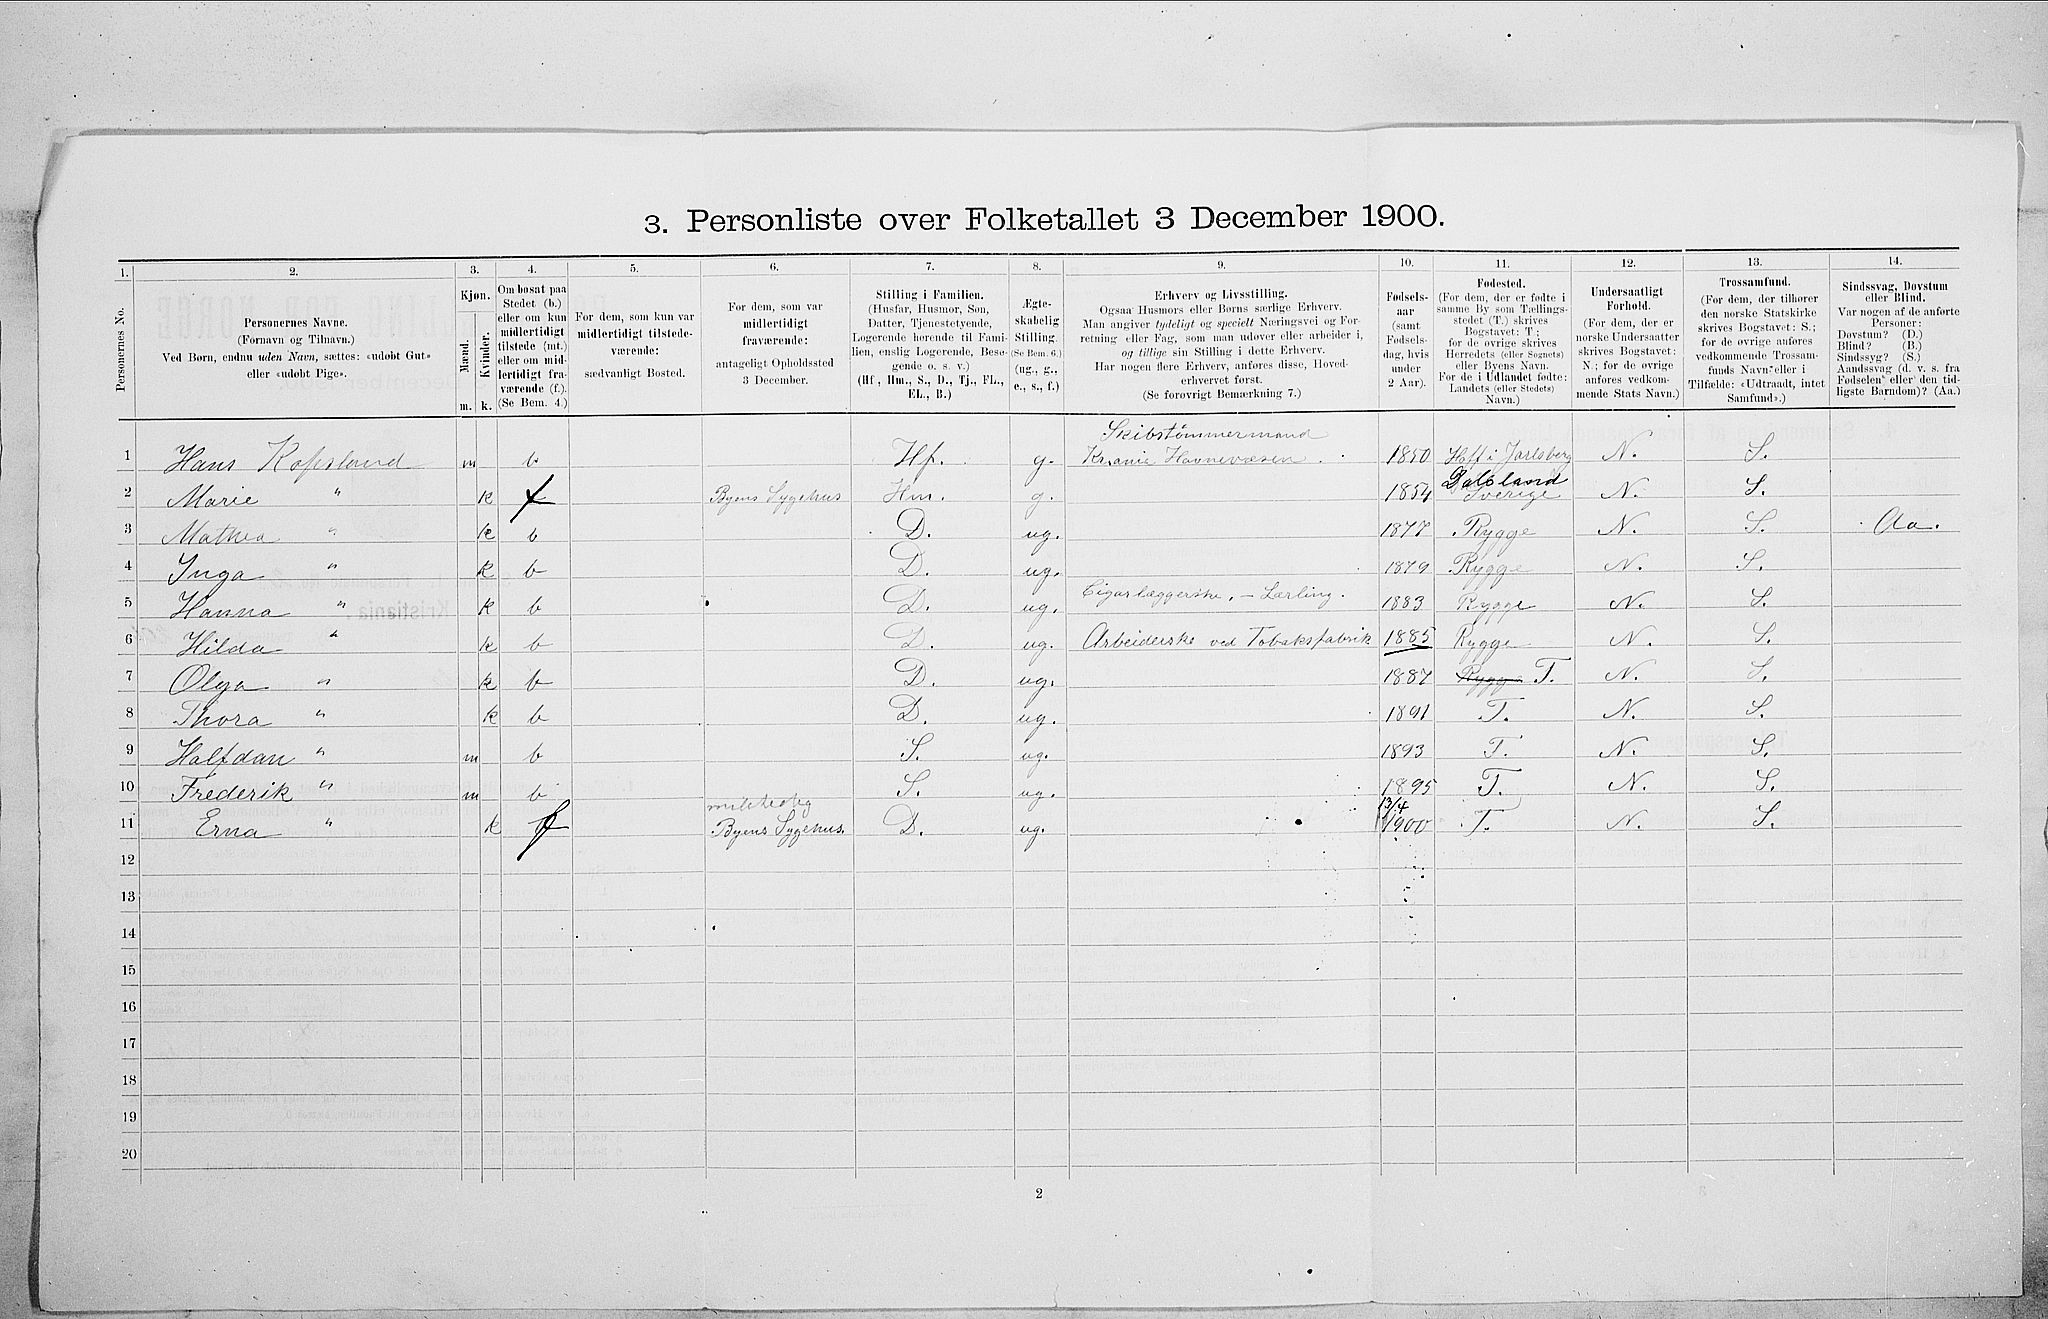 3. Personliste over Folketallet 3 December 1900.
1. 2. 3. 4. 5. 6. 7. 8. 9. 10. 11. 12. 13. 14.
Personernes No.
Personernes Navne.
(Fornavn og Tilnavn.)
Ved Børn, endnu uden Navn, sættes: «udøbt Gut»
eller «udøbt Pige».
Kjøn.
Mænd.
Kvinder.
m. k.
Om bosat paa
Stedet (b.)
eller om kun
midlertidigt
tilstede (mt.)
eller om mid-
lertidigt fra-
værende (f.).
(Se Bem. 4.)
For dem, som kun var
midlertidigt tilstede-
værende:
sædvanligt Bosted.
For dem, som var
midlertidigt
fraværende:
antageligt Opholdssted
3 December.
Stilling i Familien.
(Husfar, Husmor, Søn,
Datter, Tjenestetyende,
Logerende hørende til Fami-
lien, enslig Logerende, Besø-
gende o. s. v.)
(Hf., Hm., S., D., Tj., FL.,
EL., B.)
Ægte-
skabelig
Stilling.
(Se Bem. 6.)
(ug., g.,
e., s., f.)
Erhverv og Livsstilling.
Ogsaa Husmors eller Børns særlige Erhverv.
Man angiver tydeligt og specielt Næringsvei og For-
retning eller Fag, som man udøver eller arbeider i,
og tillige sin Stilling i dette Erhverv.
Har nogen flere Erhverv, anføres disse, Hoved-
erhvervet først.
(Se forøvrigt Bemærkning 7.)
Fødsels-
aar
(samt
Fødsels-
dag, hvis
under
2 Aar).
Fødested.
(For dem, der er fødte i
samme By som Tællings-
stedet (T.) skrives
Bogstavet: T;
for de øvrige skrives
Herredets (eller Sognets)
eller Byens Navn.
For de i Udlandet fødte:
Landets (eller Stedets)
Navn.)
Undersaatligt
Forhold.
(For dem, der er
norske Undersaatter
skrives Bogstavet:
N.; for de øvrige
anføres vedkom-
mende Stats Navn.)
Trossamfund.
(For dem, der tilhører
den norske Statskirke
skrives Bogstavet: S.;
for de øvrige anføres
vedkommende Trossam-
funds Navn eller i
Tilfælde: «Udtraadt, intet
Samfund».)
Sindssvag, Døvstum
eller Blind.
Var nogen af de anførte
Personer:
Døvstum? (D.)
Blind? (B.)
Sindssyg? (S.)
Aandssvag (d. v. s. fra
Fødselen eller den tid-
ligste Barndom)? (Aa.)
Skibstømmermand
1 Hans m b Hf. g. Kr.ania Havnevæsen 1850 Hoff i Jarlsberg N. S.
Dalsland
2 Marie " k f Byens Sygehus Hm. g. 1854 Sverige N. S.
3 Mathea " k b D. ug. 1877 Rygge N. S. Aa.
4 Inga " k b D. ug. 1879 Rygge N. S.
5 Hanna " k b D. ug. Cigarlæggerske, - Lærling. 1883 Rygge N. S.
6 Hilda " k b D. ug. Arbeiderske ved Tobaksfabrik 1885 Rygge N. S.
7 Olga " k b D. ug. 1887 Rygge T. N. S.
8 Thora " k b D. ug. 1891 T. N. S.
9 Halfdan " m b S. ug. 1893 T. N. S.
10 Frederik " m b S. ug. 1895 T. N. S.
13/4
11 Erna " k f Byens Sygehus. D. ug. 1900 T. N. S.
12
13
14
15
16
17
18
19
20
2